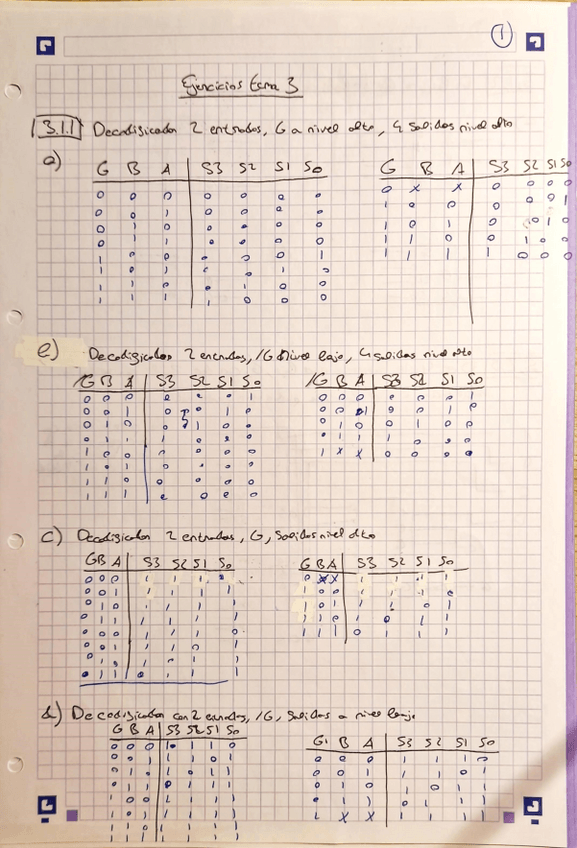 1
Ejercicios tema 3
3.1.1 Decodificador 2 entradas, G a nivel alto, 4 salidas nivel alto
a)
G B A S3 S2 S1 S0
0 0 0 0 0 0 0
0 0 1 0 0 0 0
0 1 0 0 0 0 0
0 1 1 0 0 0 0
1 0 0 0 0 0 1
1 0 1 0 0 1 0
1 1 0 0 1 0 0
1 1 1 1 0 0 0
G B A S3 S2 S1 S0
0 x x 0 0 0 0
1 0 0 0 0 0 1
1 0 1 0 0 1 0
1 1 0 0 1 0 0
1 1 1 1 0 0 0
e) Decodificador 2 entradas, /G a nivel bajo, 4 salidas nivel alto
/G B A S3 S2 S1 S0
0 0 0 0 0 0 1
0 0 1 0 0 1 0
0 1 0 0 1 0 0
0 1 1 1 0 0 0
1 0 0 0 0 0 0
1 0 1 0 0 0 0
1 1 0 0 0 0 0
1 1 1 0 0 0 0
/G B A S3 S2 S1 S0
0 0 0 0 0 0 1
0 0 1 0 0 1 0
0 1 0 0 1 0 0
0 1 1 1 0 0 0
1 x x 0 0 0 0
c) Decodificador 2 entradas, G, Salidas nivel alto
G B A S3 S2 S1 S0
G B A S3 S2 S1 S0
0 x x 1 1 1 1
1 0 0 1 1 1 0
1 0 1 1 1 0 1
1 1 0 1 0 1 1
1 1 1 0 1 1 1
d) Decodificador con 2 entradas, /G, Salidas a nivel bajo
G B A S3 S2 S1 S0
G B A S3 S2 S1 S0
0 0 0 1 1 1 0
0 0 1 1 1 0 1
0 1 0 1 0 1 1
0 1 1 0 1 1 1
1 x x 1 1 1 1